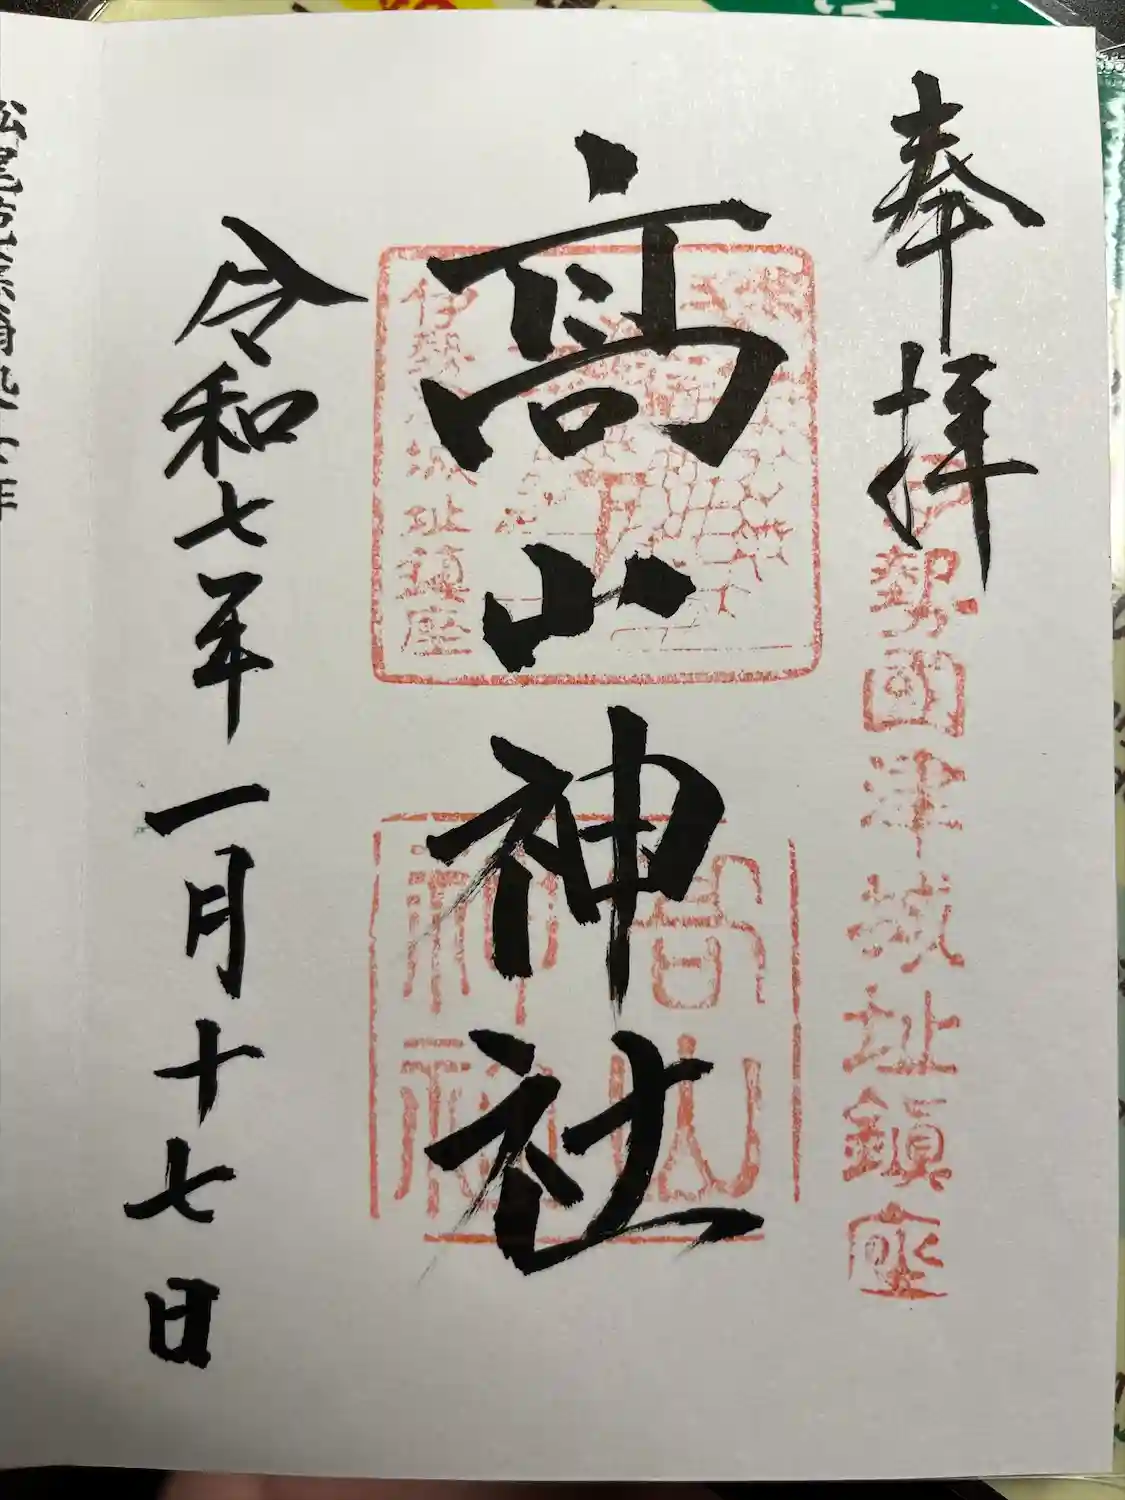 奉拝
伊勢國津城址鎮座
高山神社
伊勢
城址鎮座
高山
神社
令和七年一月十七日